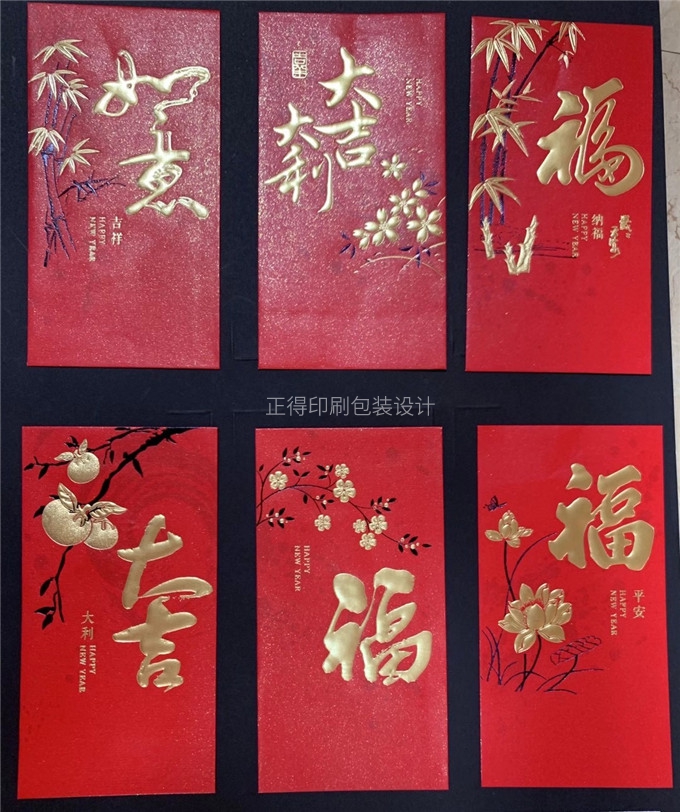 如意
吉祥
HAPPY
NEW YEAR
大吉
大利
HAPPY
NEW YEAR
福
纳福
HAPPY
NEW YEAR
正得印刷包装设计
大吉
大利
HAPPY
NEW YEAR
福
HAPPY
NEW YEAR
福
平安
HAPPY
NEW YEAR